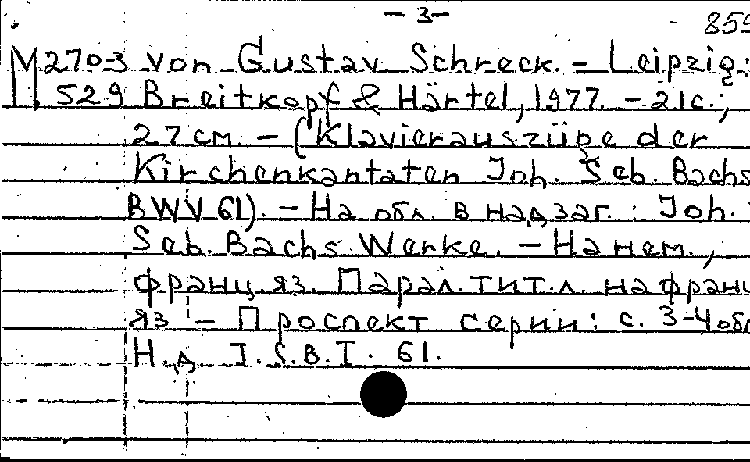 - 3 - 859
M 2703 von Gustav Schreck. - Leipzig:
529 Breitkopf & Härtel, 1977. - 21 с.;
27 см. - (Klavierauszüge der
Kirchenkantaten Joh. Seb. Bachs
BWV 61). - На обл. в надзаг.: Joh.
Seb. Bachs Werke. - На нем.,
франц. яз. Парал. тит. л. на франц
яз. - Проспект серии: с. 3-4 обл
Н.д. J.S.B.I. 61.